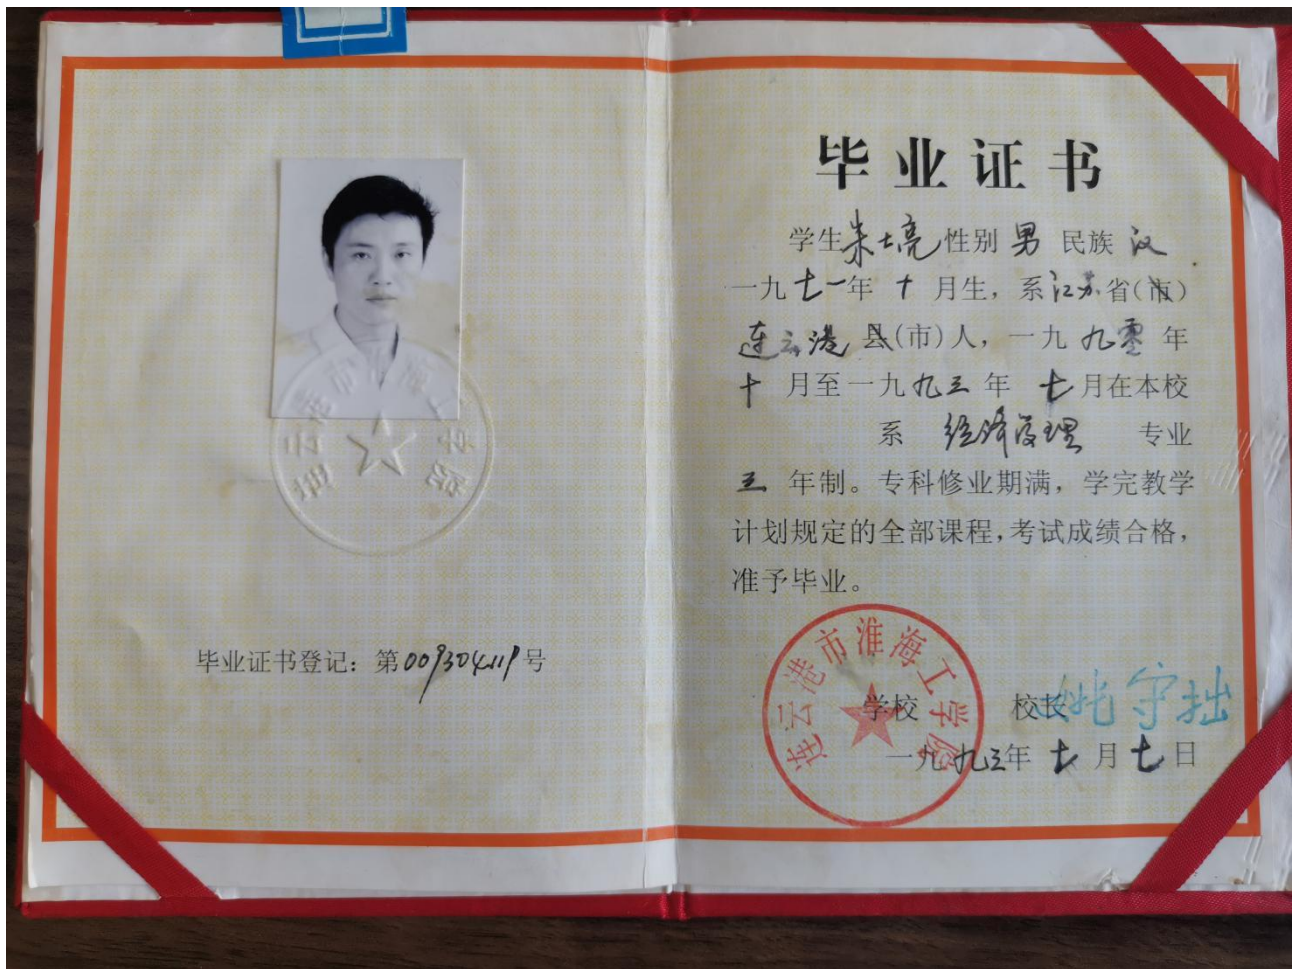 毕业证书登记：第009304119号
连云港市淮海工学院
毕业证书
学生朱士亮性别男 民族汉
一九七一年十月生，系江苏省（市）
连云港县（市）人，一九九零年
十月至一九九三年七月在本校
系 经济管理 专业
三年制。专科修业期满，学完教学
计划规定的全部课程，考试成绩合格，
准予毕业。
连云港市淮海工学院
学校 校长 姚守拙
一九九三年七月七日